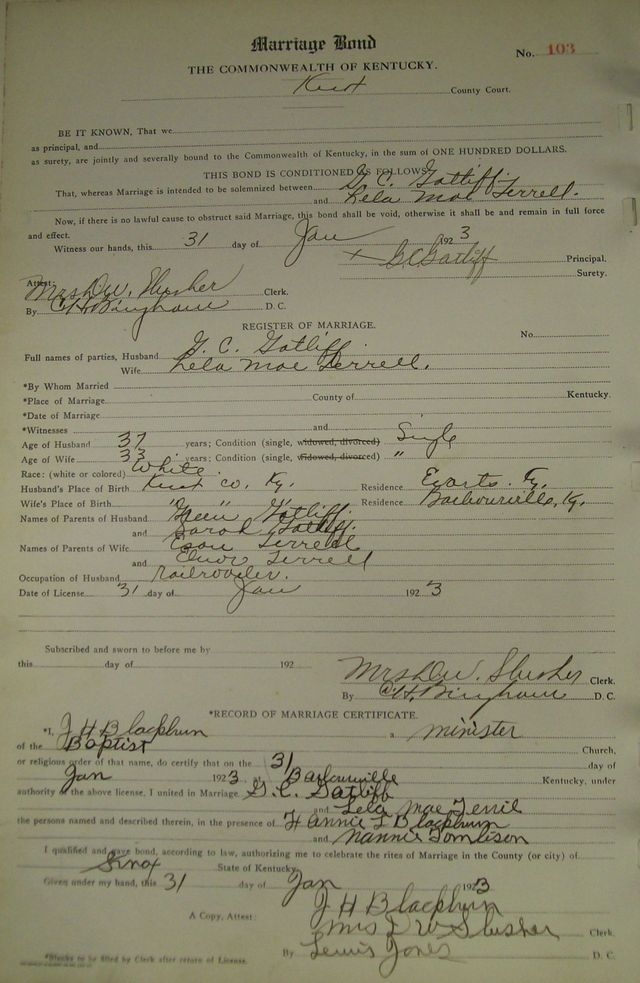 Marriage Bond
No. 103
THE COMMONWEALTH OF KENTUCKY.
Knox County Court.
BE IT KNOWN, That we
as principal, and
as surety, are jointly and severally bound to the Commonwealth of Kentucky, in the sum of ONE HUNDRED DOLLARS.
THIS BOND IS CONDITIONED AS FOLLOWS
That, whereas Marriage is intended to be solemnized between G. C. Gatliff
and Lela Mae Terrell.
Now, if there is no lawful cause to obstruct said Marriage, this bond shall be void, otherwise it shall be and remain in full force
and effect.
Witness our hands, this 31 day of Jan 1923
x G C Gatliff Principal.
Surety.
Attest:
Mrs D W. Slusher Clerk.
By C H. Bingham D. C.
REGISTER OF MARRIAGE.
No.
Full names of parties, Husband G. C. Gatliff.
Wife Lela Mae Terrell.
*By Whom Married
*Place of Marriage County of Kentucky.
*Date of Marriage
*Witnesses and
Age of Husband 37 years; Condition (single, widowed, divorced) Single
Age of Wife 33 years; Condition (single, widowed, divorced) "
Race: (white or colored) White.
Husband's Place of Birth Knox co. Ky. Residence Evarts. Ky.
Wife's Place of Birth " " " Residence Barbourville, Ky.
Names of Parents of Husband Green Gatliff.
and Sarah Gatliff.
Names of Parents of Wife Terrell
and Terrell
Occupation of Husband railroader.
Date of License 31 day of Jan 1923
Subscribed and sworn to before me by
this day of 192
Mrs D W. Slusher Clerk.
By C H. Bingham D. C.
*RECORD OF MARRIAGE CERTIFICATE.
*I, J H Blackburn a minister
of the Baptist Church,
or religious order of that name, do certify that on the 31 day of
Jan 1923 at Barbourville Kentucky, under
authority of the above license, I united in Marriage G. C. Gatliff
and Lela Mae Terril
the persons named and described therein, in the presence of Hannie L Blackburn
and Nannie Tomlison
I qualified and gave bond, according to law, authorizing me to celebrate the rites of Marriage in the County (or city) of
Knox State of Kentucky.
Given under my hand, this 31 day of Jan 1923
J H Blackburn
A Copy, Attest: Mrs D W Slusher Clerk.
By Lewis Jones D. C.
*Blanks to be filled by Clerk after return of License.